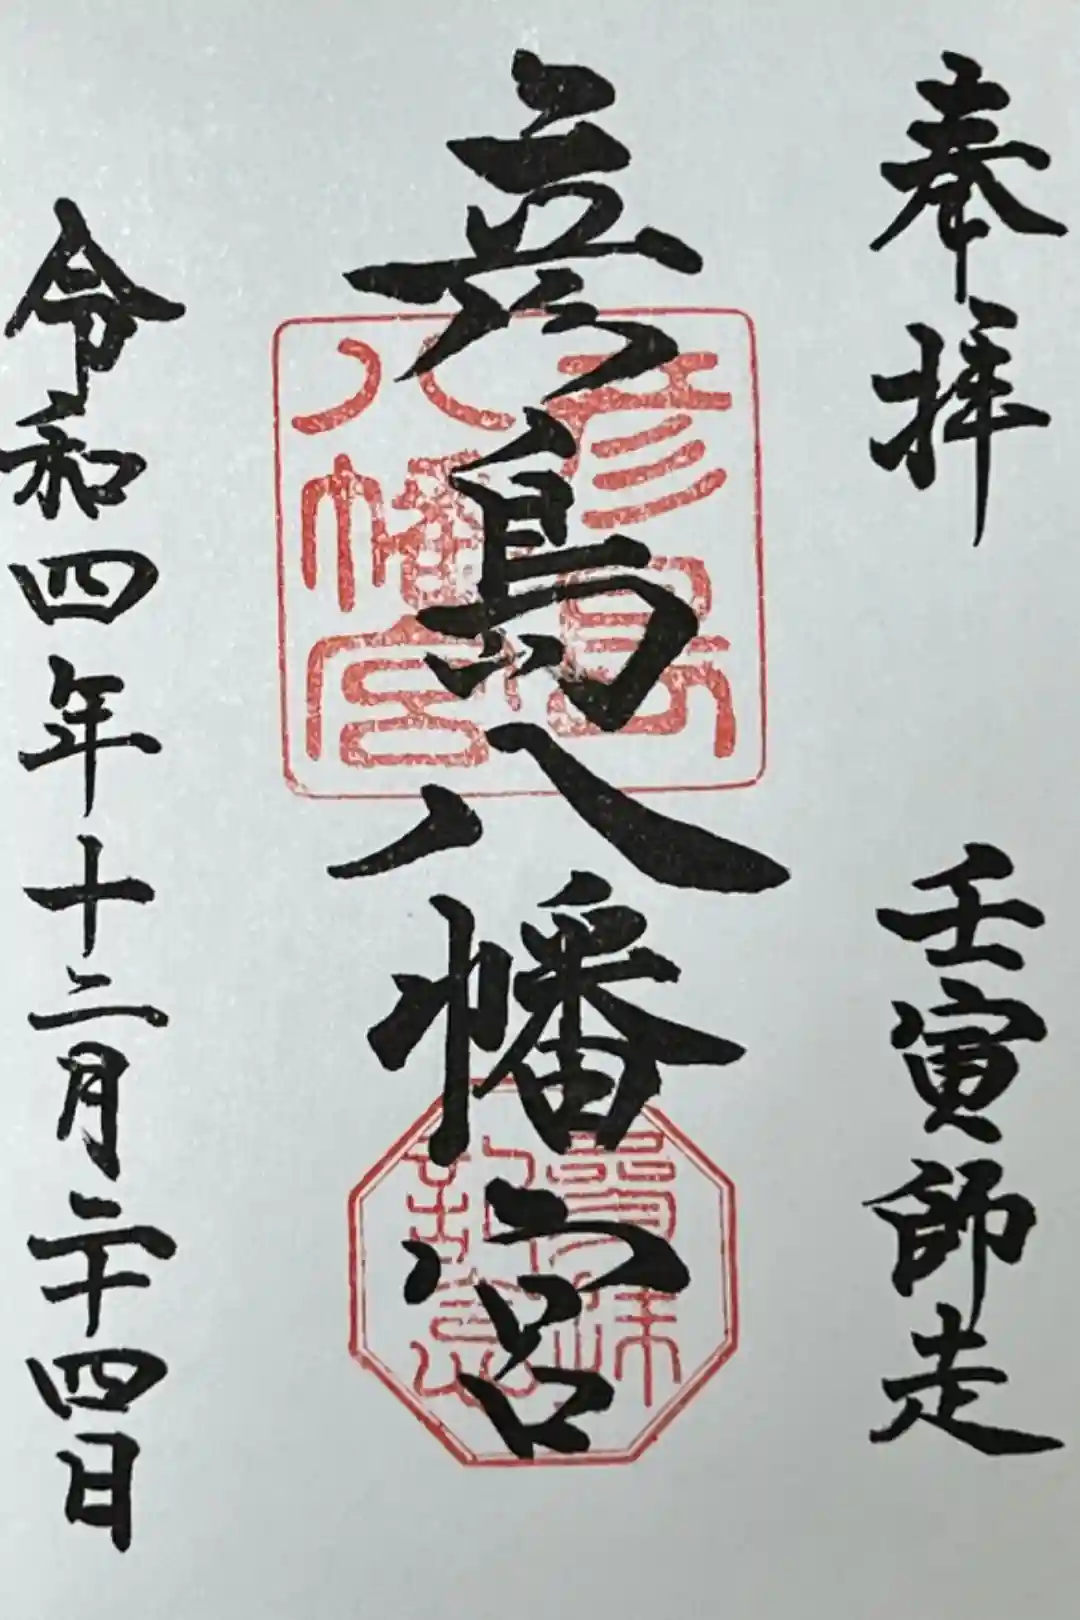 奉拝
壬寅師走
彦島八幡宮
彦島
八幡宮
令和四年十二月二十四日